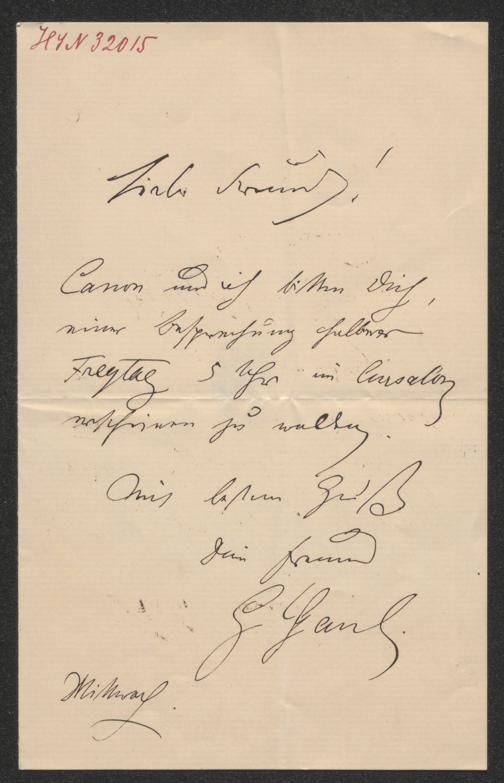 HIN 32015
Lieber Freund!
Canon und ich bitten Dich,
einer Besprechung halber
Freytag 5 Uhr im Cursalon
erscheinen zu wollen.
Mit bestem Gruß
Dein Freund
G Gaul.
Mittwoch.